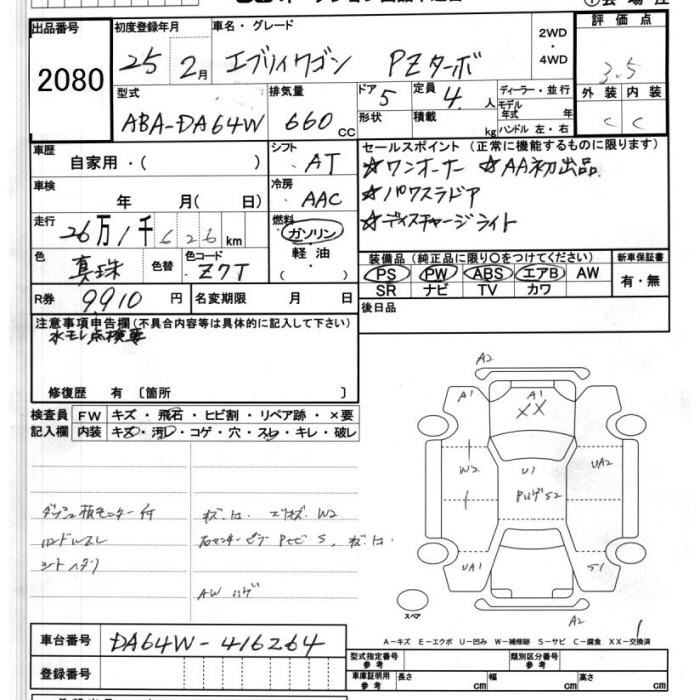 出品番号 初度登録年月 車名・グレード 2WD・4WD 評価点
2080
25 2月 エブリィワゴン PZターボ 3.5
型式 排気量 ドア 5 定員 4人 ディーラー・並行 外装 内装
ABA-DA64W 660cc 形状 積載 kg モデル年式 年 C C
ハンドル 左・右
車歴 自家用・( ) シフト AT セールスポイント(正常に機能するものに限ります)
☆ワンオーナー ☆AA初出品
車検 年 月( 日) 冷房 AAC ☆パワスラドア
走行 26万1千626km 燃料 ガソリン・軽油・( ) ☆ディスチャージライト
色 真珠 色替 色コード Z7T 装備品(純正品に限り○をつけてください) 新車保証書
PS PW ABS エアB AW 有・無
SR ナビ TV カワ
R券 9910円 名変期限 月 日 後日品
注意事項申告欄(不具合内容等は具体的に記入して下さい)
水モレ点検要
修復歴 有 〔箇所 〕
検査員 FW キズ・飛石・ヒビ割・リペア跡・×要
記入欄 内装 キズ・汚レ・コゲ・穴・スレ・キレ・破レ
A2
A1 A1 A1
XX
W2 U1 UA2
UA1 S1
A2
スペア
ハンドルスレ
AW ハゲ
A-キズ E-エクボ U-凹み W-補修跡 S-サビ C-腐食 XX-交換済
車台番号 DA64W-416264
登録番号
型式指定番号 参考 類別区分番号 参考
車庫証明用 参考 長さ cm 幅 cm 高さ cm